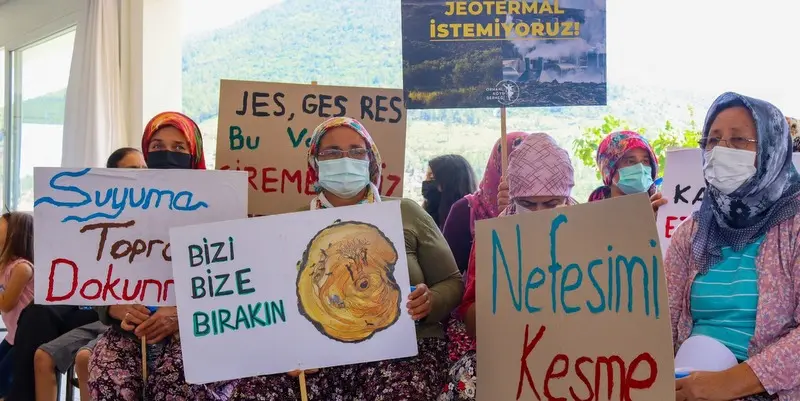 JEOTERMAL
İSTEMİYORUZ!
JES, GES RES
Bu
Suyuma
Dokunma
BİZİ
BİZE
BIRAKIN
Nefesimi
Kesme